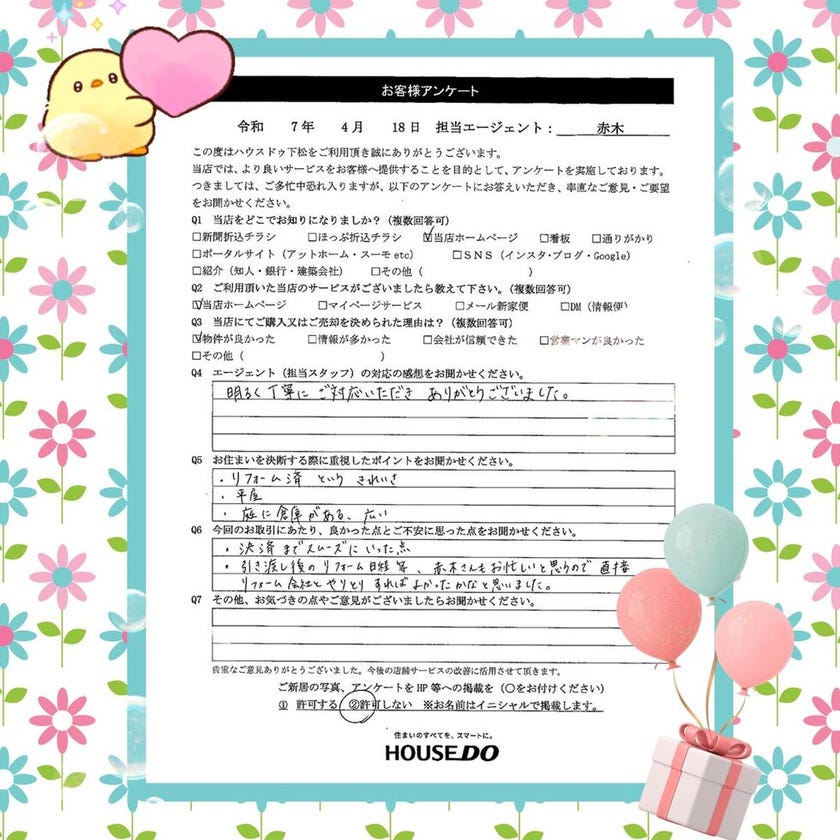 お客様アンケート
令和 7年 4月 18日 担当エージェント： 赤木
この度はハウスドゥ下松をご利用頂き誠にありがとうございます。
当店では、より良いサービスをお客様へ提供することを目的として、アンケートを実施しております。
つきましては、ご多忙中恐れ入りますが、以下のアンケートにお答えいただき、率直なご意見・ご要望
をお聞かせください。
Q1 当店をどこでお知りになりましたか？（複数回答可）
□新聞折込チラシ □ほっぷ折込チラシ ☑当店ホームページ □看板 □通りがかり
□ポータルサイト（アットホーム・スーモ etc） □SNS（インスタ・ブログ・Google）
□紹介（知人・銀行・建築会社） □その他（ ）
Q2 ご利用頂いた当店のサービスがございましたら教えて下さい。（複数回答可）
☑当店ホームページ □マイページサービス □メール新家便 □DM（情報便）
Q3 当店にてご購入又はご売却を決められた理由は？（複数回答可）
☑物件が良かった □情報が多かった □会社が信頼できた □営業マンが良かった
□その他（ ）
Q4 エージェント（担当スタッフ）の対応の感想をお聞かせください。
明るく丁寧にご対応いただき ありがとうございました。
Q5 お住まいを決断する際に重視したポイントをお聞かせください。
・リフォーム済 という きれいさ
・平屋
・庭に倉庫がある、広い
Q6 今回のお取引にあたり、良かった点とご不安に思った点をお聞かせください。
・決済までスムーズにいった点
・引き渡し後のリフォーム日程等、赤木さんもお忙しいと思うので直接
リフォーム会社とやりとりすればよかったかなと思いました。
Q7 その他、お気づきの点やご意見がございましたらお聞かせください。
貴重なご意見ありがとうございました。今後の店舗サービスの改善に活用させて頂きます。
ご新居の写真、アンケートをHP等への掲載を（○をお付けください）
① 許可する ②許可しない ※お名前はイニシャルで掲載します。
住まいのすべてを、スマートに。
HOUSEDO